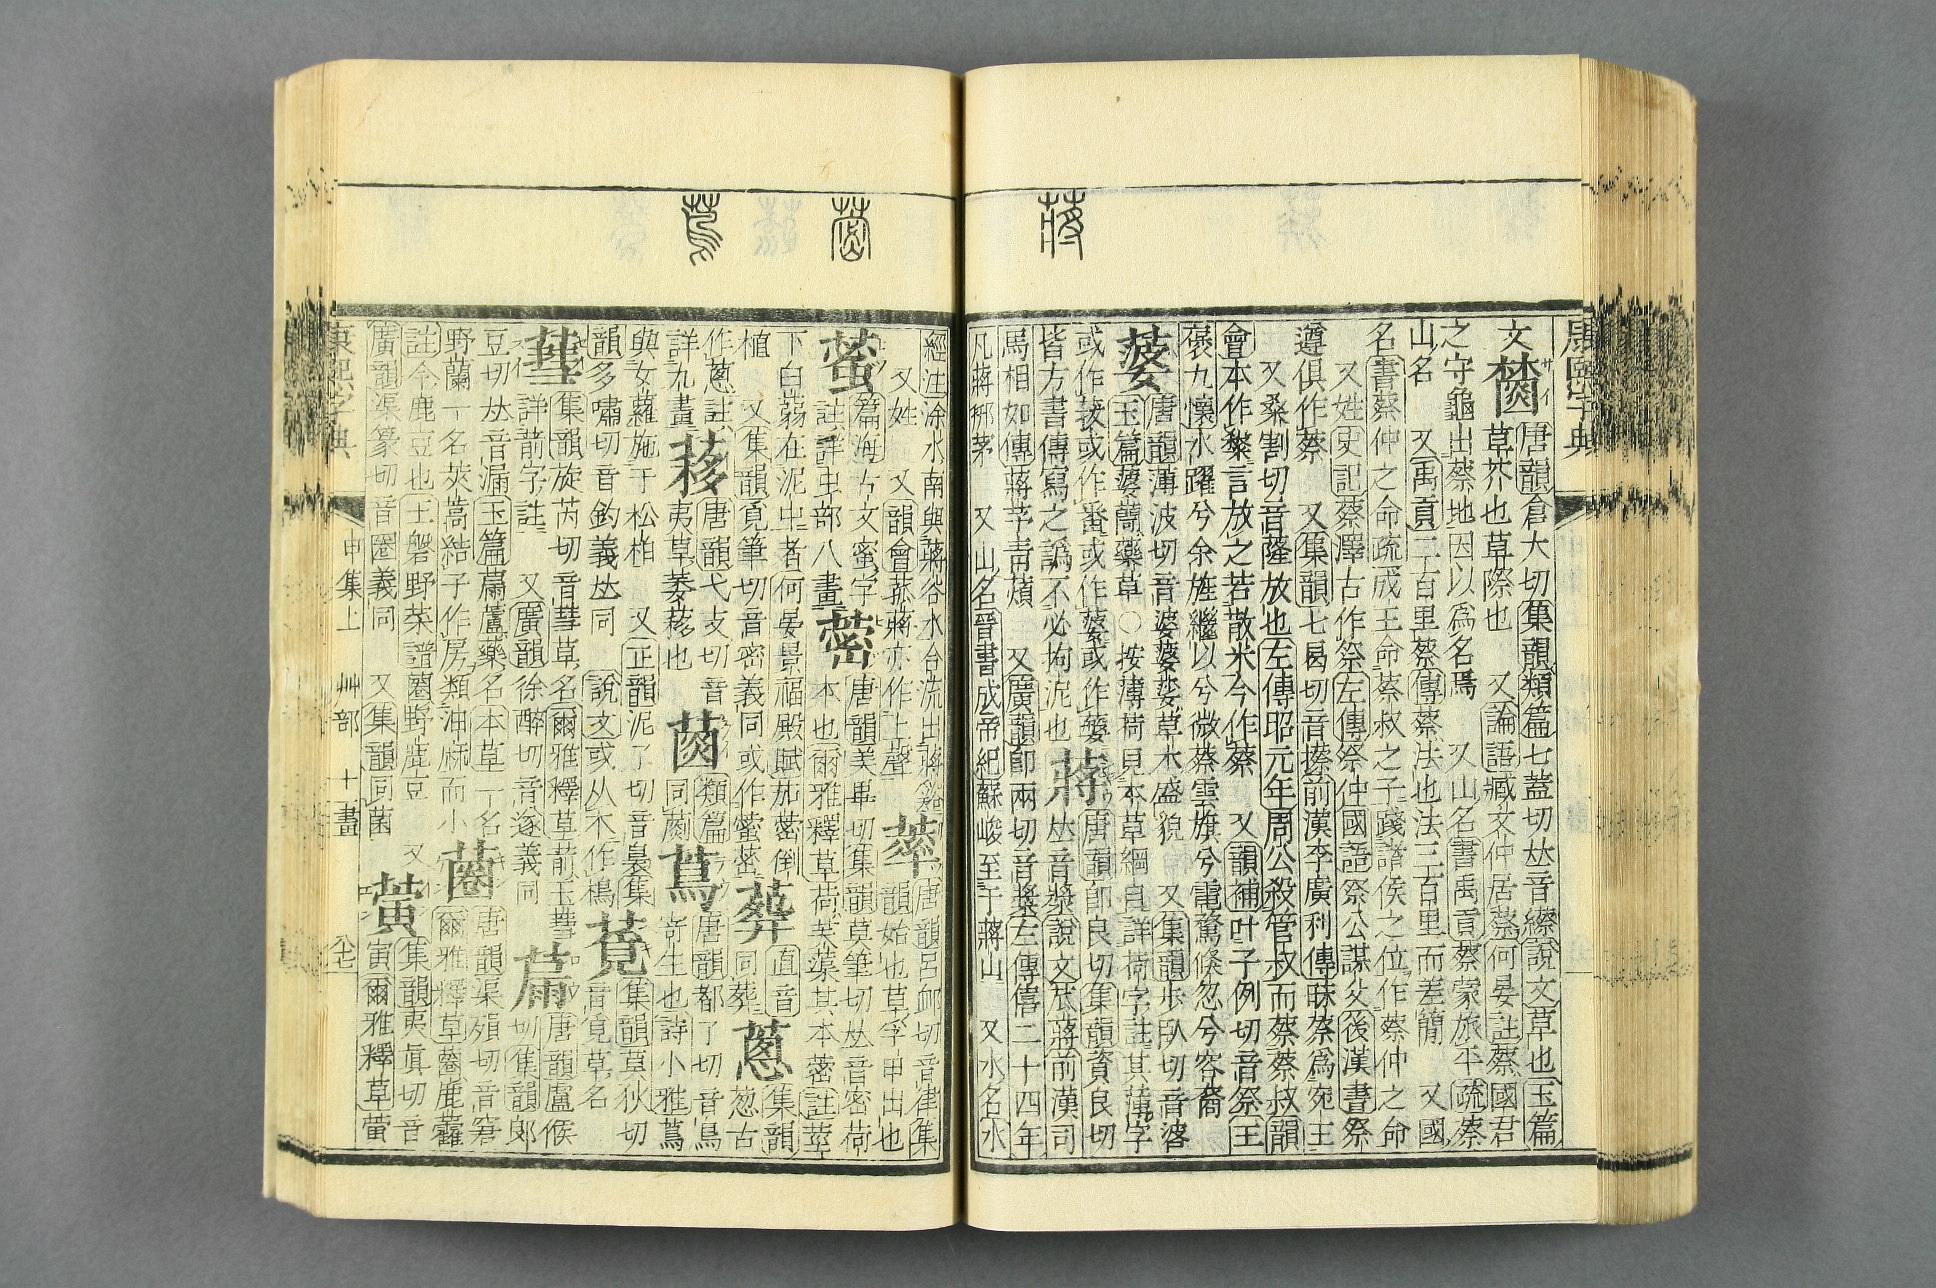 蔣
康熙字典
文
唐韻倉大切集韻類篇七蓋切𠀤音縩說文草也玉篇
草芥也草際也 又論語臧文仲居蔡何晏註蔡國君
之守龜出蔡地因以為名焉 又山名書禹貢蔡蒙旅平疏蔡
山名 又禹貢二百里蔡傳蔡法也法三百里而差簡 又國
名書蔡仲之命疏成王命蔡叔之子踐諸侯之位作蔡仲之命
又姓史記蔡澤古作祭左傳祭仲國語祭公謀父後漢書祭
遵俱作蔡 又集韻七曷切音攃前漢李廣利傳昧蔡為宛王
又桑割切音薩放也左傳昭元年周公殺管叔而蔡蔡叔韻
會本作𥻦言放之若散米今作蔡 又韻補叶子例切音祭王
褒九懷水躍兮余旌繼以兮微蔡雲旗兮電騖倐忽兮容裔
蔢
唐韻薄波切音婆蔢蔢草木盛貌 又集韻步臥切音
玉篇蔢蕳藥草○按薄荷見本草綱目詳荷字註其薄字
或作菝或作蕃或作蔢或作
皆方書傳寫之譌不必拘泥也
蔣
唐韻卽良切集韻資良切
𠀤音漿說文苽蔣前漢司
馬相如傳蔣芧靑薠 又廣韻卽兩切音獎左傳僖二十四年
凡蔣邢茅 又山名晉書成帝紀蘇峻至于蔣山 又水名水
經注涂水南與蔣谷水合流出蔣谿
又姓 又韻會菰蔣亦作上聲
䔞
唐韻呂䘏切音律集
韻始也草孚甲出也
䘃
篇海古文蜜字
註詳虫部八畫
蔤
唐韻美畢切集韻莫筆切𠀤音密荷
本也爾雅釋草荷芙蕖其本蔤註莖
下白蒻在泥中者何晏景福殿賦茄蔤倒
植 又集韻覓筆切音密義同或作
葬
直音
同葬
蔥
集韻
葱古
作蔥註
詳九畫
䔟
唐韻弋支切音
夷草萎䔟也
菌
類篇
同菌
蔦
唐韻都了切音鳥
寄生也詩小雅蔦
與女蘿施于松柏 又正韻泥了切音裊集
韻多嘯切音釣義𠀤同 說文或从木作樢
蓂
集韻莫狄切
音覓草名
蔧
集韻旋芮切音彗草名爾雅釋草葥王蔧
詳葥字註 又廣韻徐醉切音遂義同
唐韻盧候
切集韻郎
豆切𠀤音漏玉篇藘藥名本草一名
野蘭一名莢蒿結子作房類油麻而小
蔨
唐韻渠殞切音窘
爾雅釋草蔨鹿藿
註今鹿豆也王磐野菜譜蔨野鹿豆 又
廣韻渠篆切音圈義同 又集韻同菌
䔬
集韻夷眞切音
寅爾雅釋草
蔨
蔦
康熙字典
申集上
艸部
十一畫